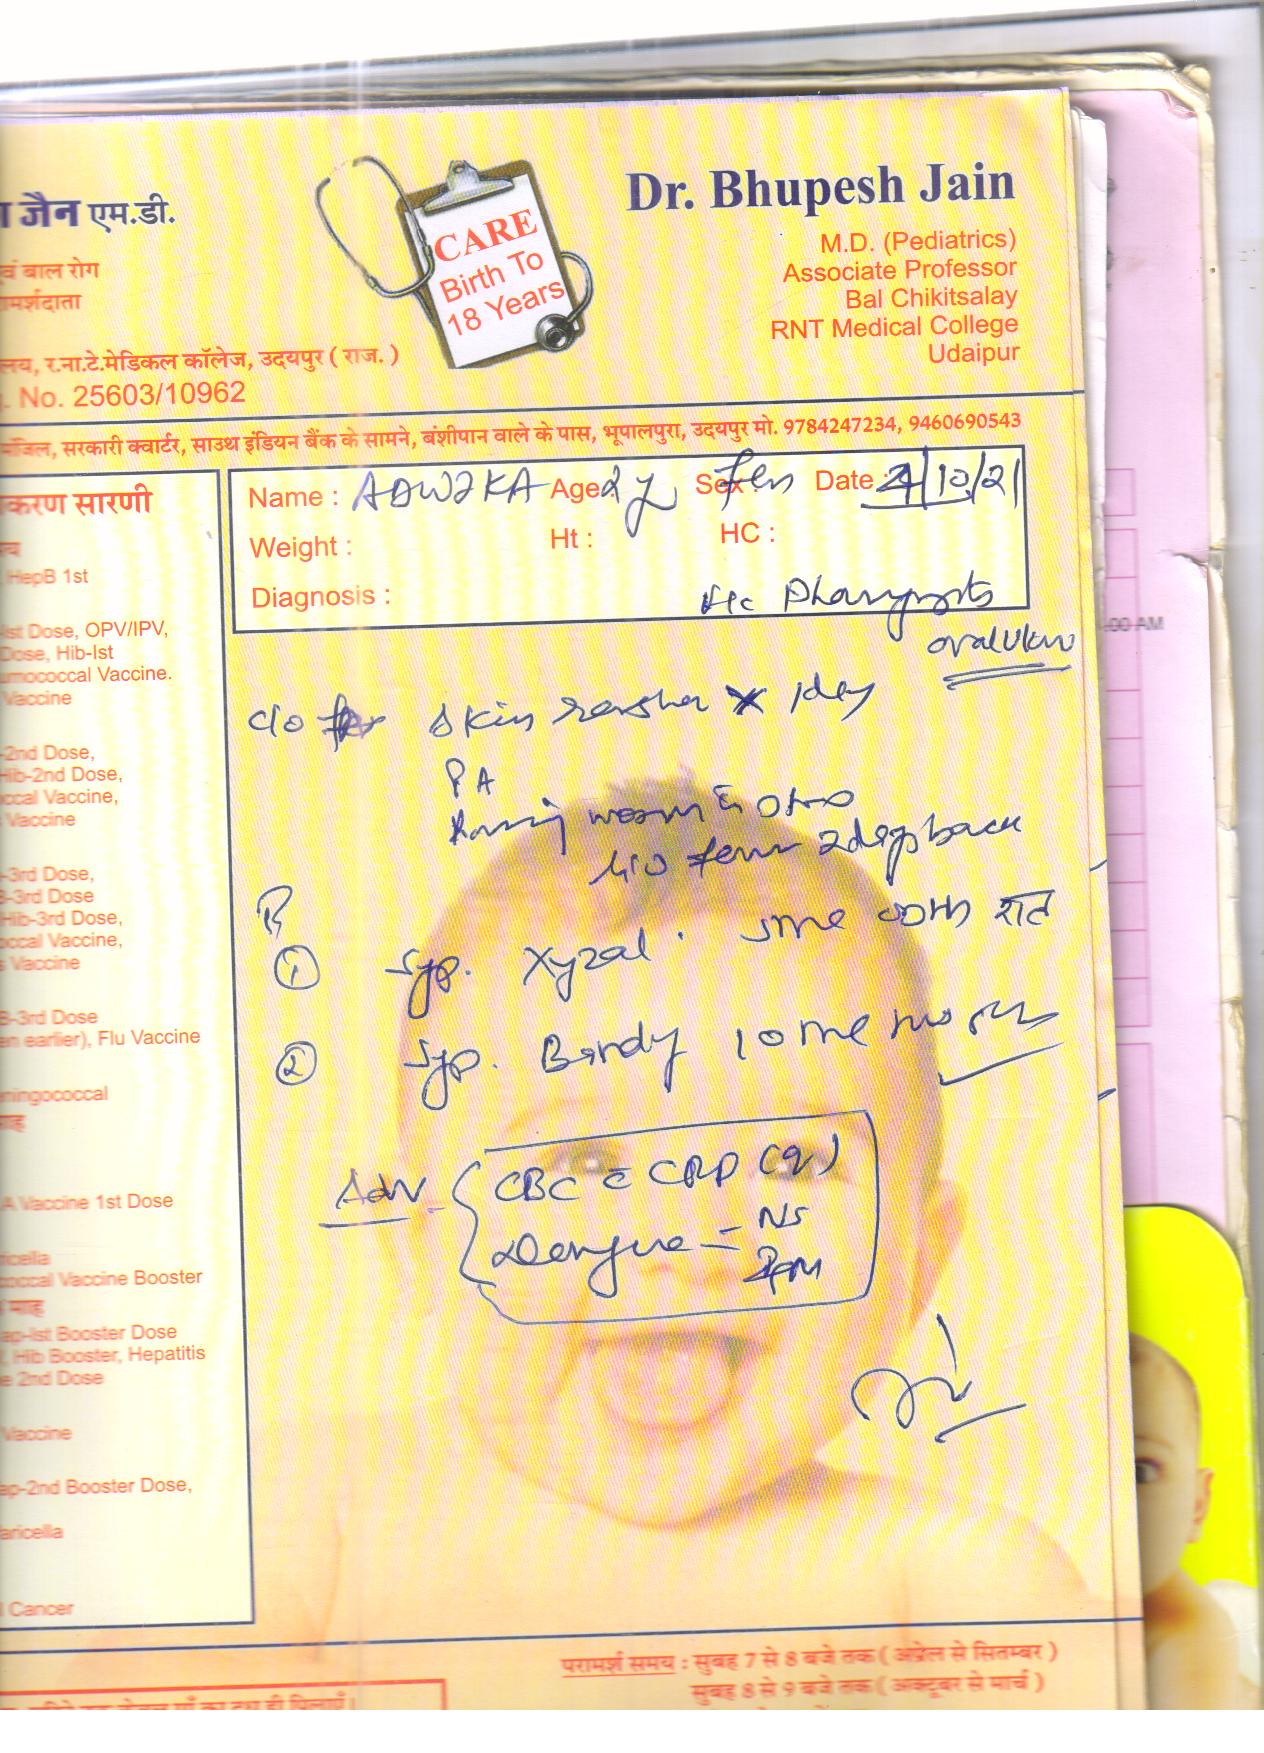 जैन एम.डी.
वं बाल रोग
रामर्शदाता
लय, र.ना.टे.मेडिकल कॉलेज, उदयपुर ( राज. )
No. 25603/10962
CARE
Birth To
18 Years
Dr. Bhupesh Jain
M.D. (Pediatrics)
Associate Professor
Bal Chikitsalay
RNT Medical College
Udaipur
मंजिल, सरकारी क्वार्टर, साउथ इंडियन बैंक के सामने, बंशीपान वाले के पास, भूपालपुरा, उदयपुर मो. 9784247234, 9460690543
करण सारणी
HepB 1st
Ist Dose, OPV/IPV,
Dose, Hib-Ist
umococcal Vaccine.
Vaccine
-2nd Dose,
Hib-2nd Dose,
ccal Vaccine,
Vaccine
-3rd Dose,
B-3rd Dose
Hib-3rd Dose,
occal Vaccine,
Vaccine
B-3rd Dose
en earlier), Flu Vaccine
eningococcal
माह
A Vaccine 1st Dose
ricella
ococcal Vaccine Booster
माह
ap-Ist Booster Dose
, Hib Booster, Hepatitis
e 2nd Dose
Vaccine
ap-2nd Booster Dose,
aricella
l Cancer
Name : ADWIKA Age 2 y Sex : Date : 4/10/21
Weight : Ht : HC :
Diagnosis :
c/o skin x 1day
PA
worm
2days back
① Syp. Xyzal. रात
② Syp. Bandy 10 ml
Adv CBC c CRP (q)
Dengue - NS
:00 AM
परामर्श समय : सुबह 7 से 8 बजे तक ( अप्रेल से सितम्बर )
सुबह 8 से 9 बजे तक ( अक्टूबर से मार्च )
माँ का दूध ही पिलाएँ।